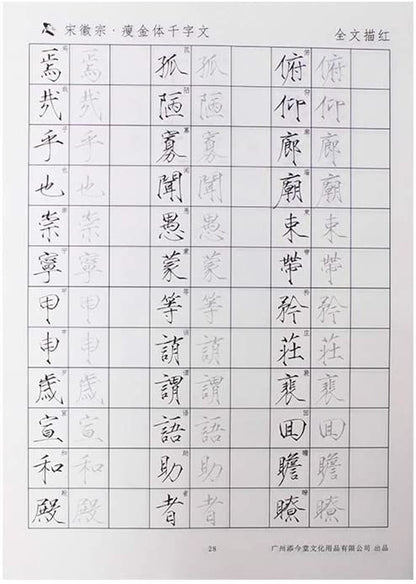 宋徽宗·瘦金体千字文
全文描红
俯仰廊廟束帶矜莊裵回瞻瞭
俯仰廊廟束帶矜莊裵回瞻瞭
孤陋寡聞愚蒙等誚謂語助者
孤陋寡聞愚蒙等誚謂語助者
焉哉乎也崇寧甲申歲宣和殿
焉哉乎也崇寧甲申歲宣和殿
28
广州添今堂文化用品有限公司 出品